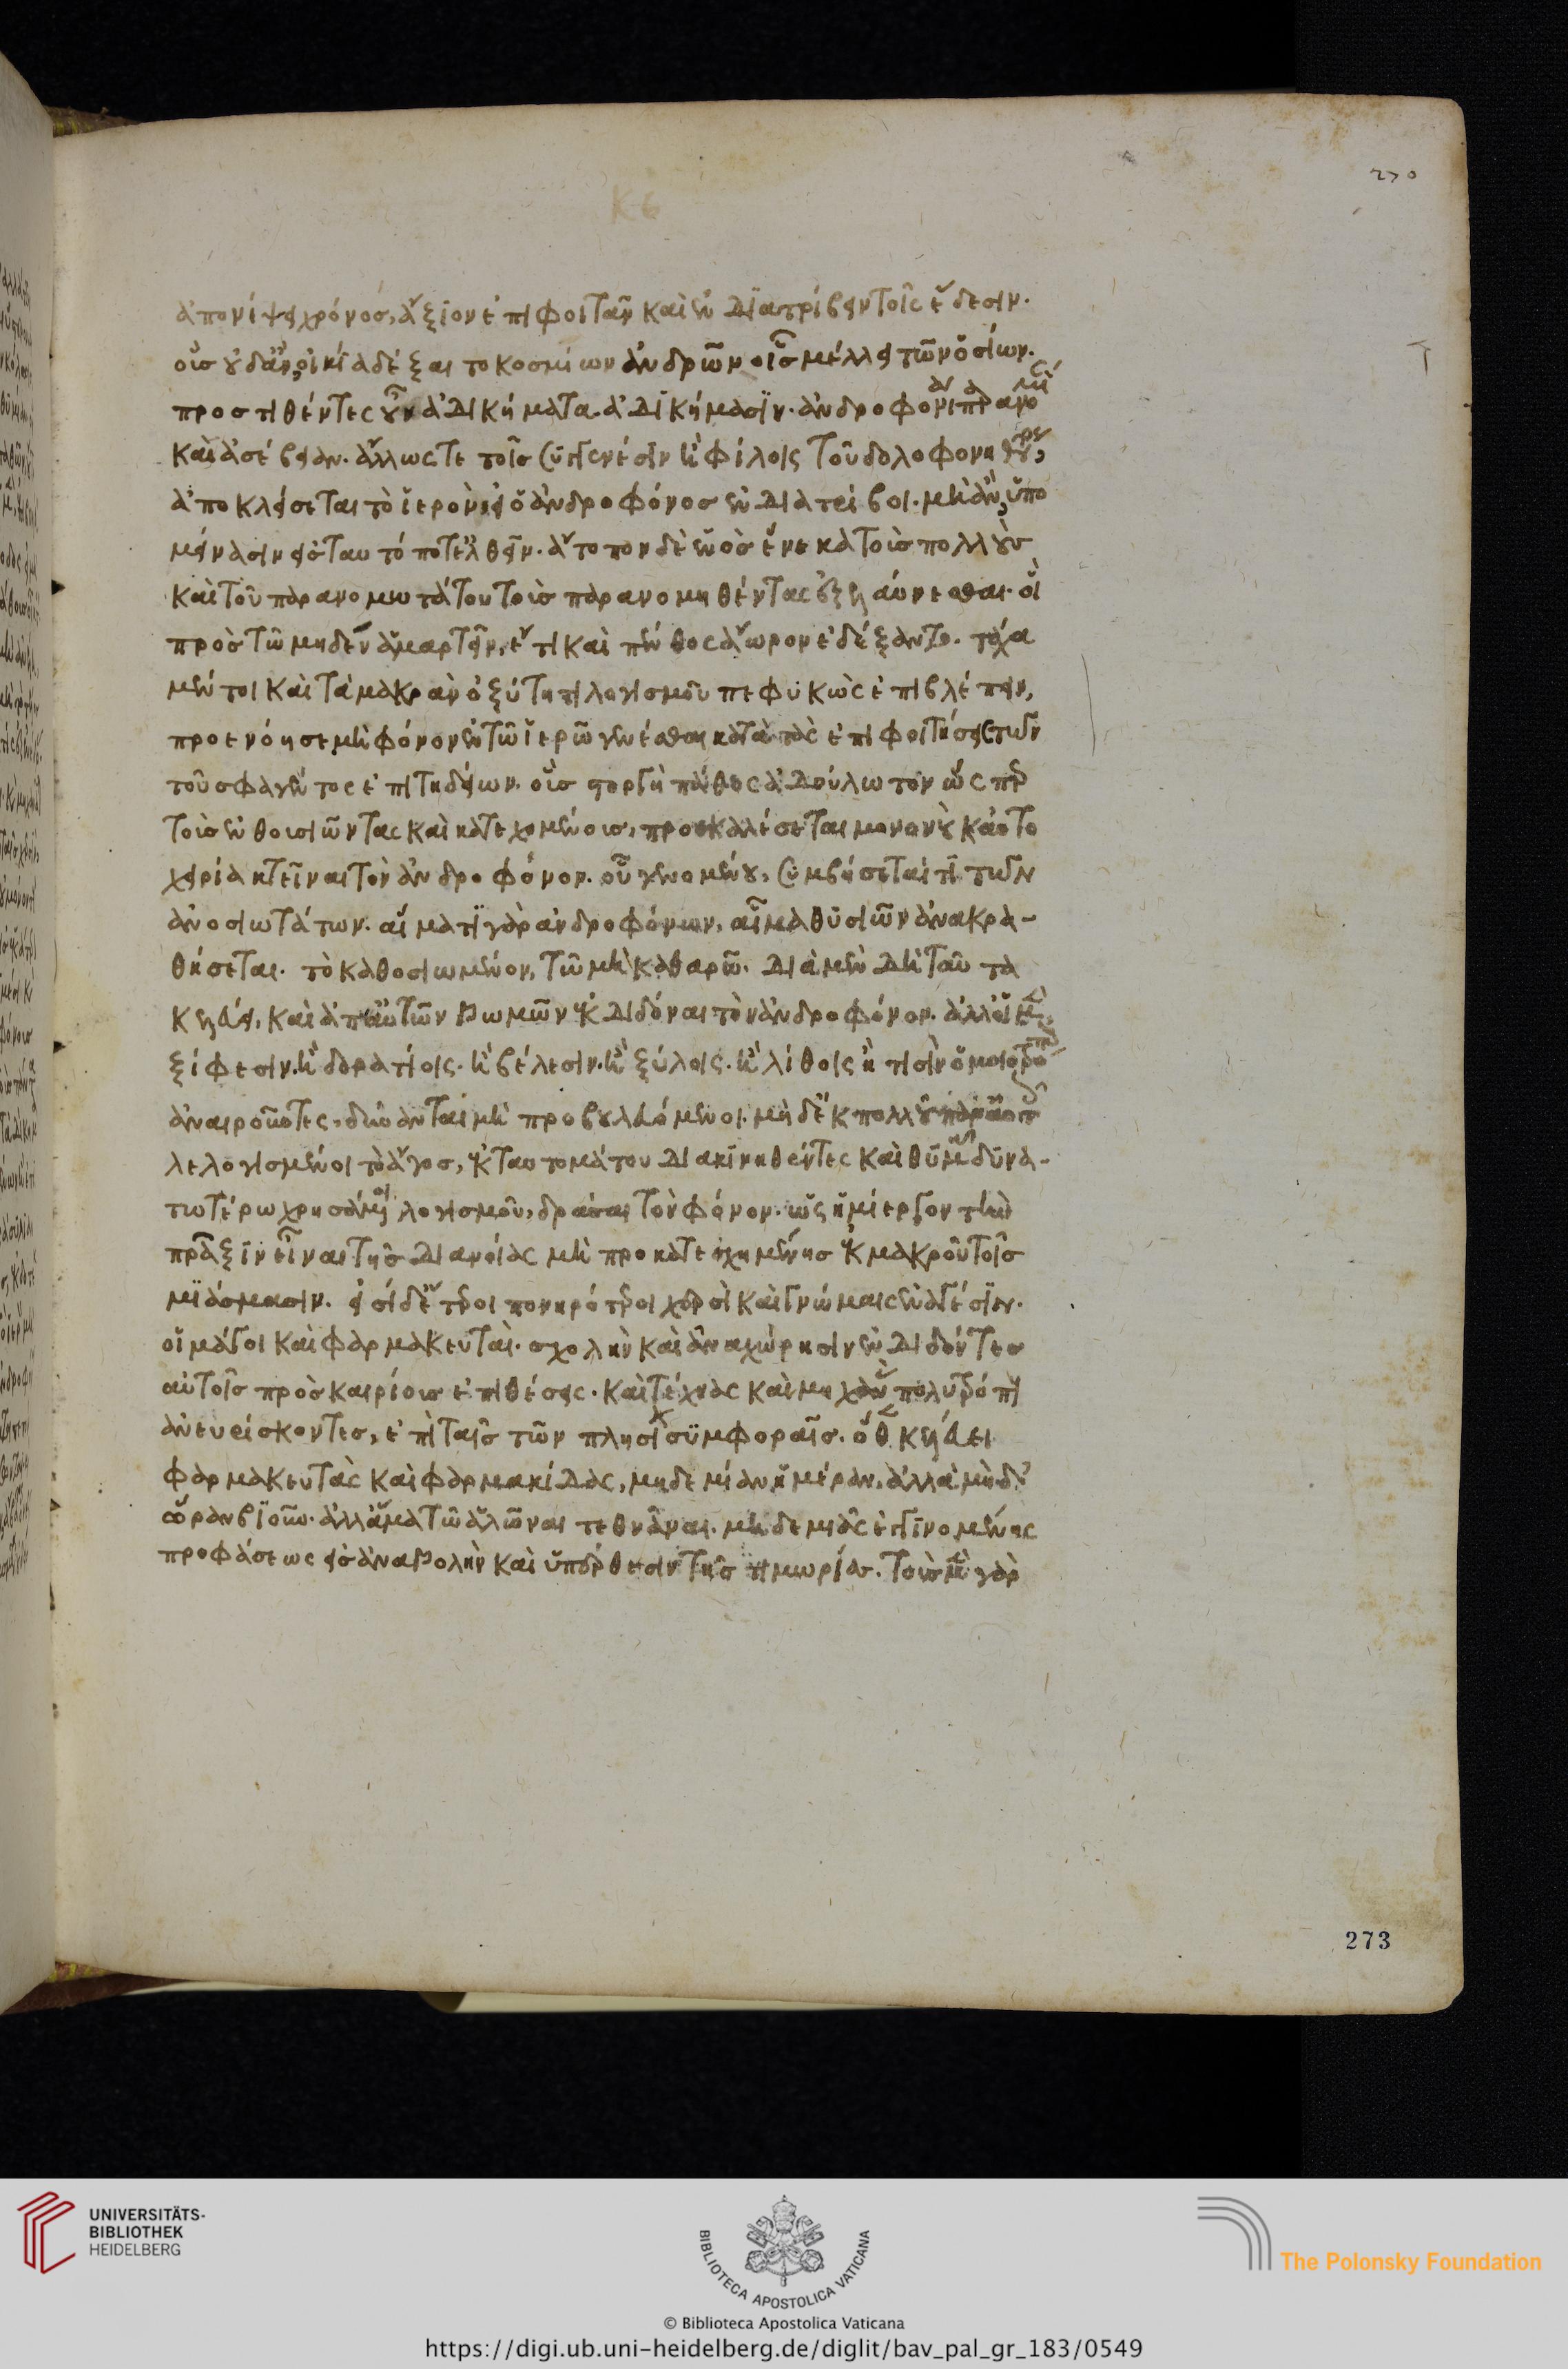 ἀπονίψει χρόνος, ἄξιον ἐπιφοιτᾶν καὶ ἐνδιατρίβειν τοῖς ἕδεσιν.
οὓς οὐδ' ἂν οἰκία δέξαιτο κοσμίων ἀνδρῶν οἷς μέλλει τῶν ὁσίων.
προστιθέντες οὖν ἀδικήματα ἀδικήμασιν. ἀνδροφονίαν παρανομίαν
καὶ ἀσέβειαν. ἄλλως τε τοῖς συγγενέσιν ἢ φίλοις τοῦ δολοφονηθέντος,
ἀποκλείσεται τὸ ἱερὸν εἰ ὁ ἀνδροφόνος ἐνδιατρίβοι. μὴ ἂν ὑπο
μείνασιν εἰς ταυτό ποτ' ἐλθεῖν. ἄτοπον δὲ ἑνὸς ἕνεκα τοὺς πολλοὺς
καὶ τοῦ παρανομωτάτου τοὺς παρανομηθέντας ἐξελαύνεσθαι. οἳ
πρὸς τῶ μηδὲν ἁμαρτεῖν, ἔτι καὶ πένθος ἄωρον ἐδέξαντο. τάχα
μέντοι καὶ τὰ μακρὰν ὀξύτητι λογισμοῦ πεφυκὼς ἐπιβλέπειν,
προενόησε μὴ φόνον ἐν τῶ ἱερῶ γενέσθαι κατὰ τὰς ἐπιφοιτήσεις τῶν
τοῦ σφαγέντος ἐπιτηδείων. οὓς στοργὴ πάθος ἀδούλωτον ὥσπερ
τοὺς ἐνθουσιῶντας καὶ κατεχομένους, προσκαλέσεται μονονοὺκ αὐτο
χειρία κτεῖναι τὸν ἀνδροφόνον. οὗ γενομένου, συμβήσεταί τι τῶν
ἀνοσιωτάτων. αἵματι γὰρ ἀνδροφόνων, αἷμα θυσιῶν ἀνακρα-
θήσεται. τὸ καθοσιωμένον, τῶ μὴ καθαρῶ. διὰ μὲν δὴ ταῦτα
κελεύει, καὶ ἀπ' αὐτῶν βωμῶν ἐκδιδόναι τὸν ἀνδροφόνον. ἀλλ' οἱ μὲν
ξίφεσιν. ἢ δορατίοις. ἢ βέλεσιν. ἢ ξύλοις. ἢ λίθοις ἤ τισιν ὁμοιοτρόποις
λελογισμένοι τὸ ἄγος, ἐκ ταυτομάτου διακινηθέντες καὶ θυμῶ δυνα-
τωτέρω χρησάμενοι λογισμοῦ, δρᾶσαι τὸν φόνον. ὡς ἡμίεργον τὴν
πρᾶξιν εἶναι τῆς διανοίας μὴ προκατεσχημένης ἐκ μακροῦ τοῖς
μιάσμασιν. εἰσὶ δ' ἕτεροι πονηρότεροι χερσὶ καὶ γνώμαις ἐναγέσιν.
οἱ μάγοι καὶ φαρμακευταί. σχολὴν καὶ ἀναχώρησιν ἐνδιδόντες
αὑτοῖς πρὸς καιρίους ἐπιθέσεις. καὶ τέχνας καὶ μηχανὰς πολυτρόπους
ἀνευρίσκοντες, ἐπὶ ταῖς τῶν πλησίον συμφοραῖς. ὅθεν κελεύει
φαρμακευτὰς καὶ φαρμακίδας, μηδὲ μίαν ἡμέραν, ἀλλὰ μηδ'
ὥραν βιοῦν. ἀλλ' ἅμα τῶ ἁλῶναι τεθνάναι. μηδεμιᾶς ἐγγινομένης
προφάσεως εἰς ἀναβολὴν καὶ ὑπέρθεσιν τῆς τιμωρίας. τοὺς μὲν γὰρ
273
UNIVERSITÄTS-
BIBLIOTHEK
HEIDELBERG
BIBLIOTECA APOSTOLICA VATICANA
The Polonsky Foundation
© Biblioteca Apostolica Vaticana
https://digi.ub.uni-heidelberg.de/diglit/bav_pal_gr_183/0549